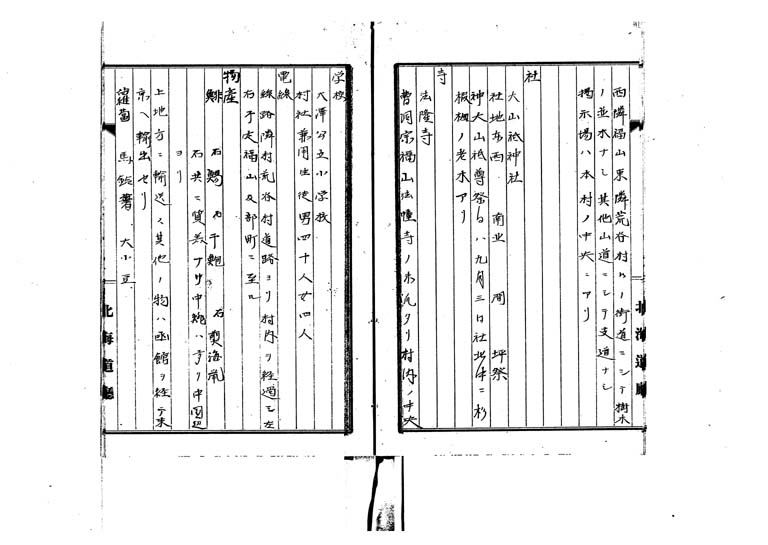 西隣福山東隣荒谷村ヘノ街道ニシテ樹木
ノ並木ナシ其他山道ニシテ支道ナシ
掲示場ハ本村ノ中央ニアリ
社
大山祇神社
社地東西 南北 間 坪祭
神大山祇尊祭日ハ九月三日社地中ニ杉
椴ノ老木アリ
寺
法隆寺
曹洞宗福山法幢寺ノ末派タリ村内ノ中央
北海道廳
学校
大澤公立小学校
村社兼用生徒男四十人女四人
電線
線路隣村荒谷村道路ヨリ村内ヲ経過シ左
右于走福山及部町ニ至ル
物産
鯡 石鱈 石干鮑 石製海鼠
石共ニ質美アリ中鮑ハ専リ中国辺
ヨリ
上地方ニ輸送ス其他ノ物ハ函館ヲ経テ東
京ヘ輸出セリ
蘿蔔 馬鈴薯 大小豆
北海道廳